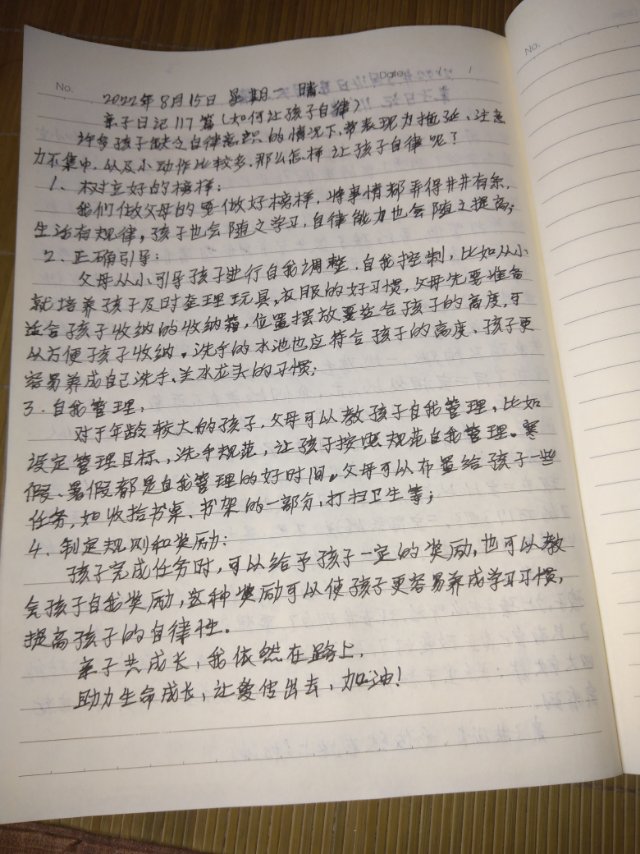 No.
Date
2022年8月15日 星期一 晴
亲子日记117篇(如何让孩子自律)
许多孩子缺乏自律意识的情况下,常表现为拖延、注意
力不集中,以及小动作比较多,那么怎样让孩子自律呢?
1、树立好的榜样:
我们做父母的要做好榜样,将事情都弄得井井有条,
生活有规律,孩子也会随之学习,自律能力也会随之提高;
2、正确引导:
父母从小引导孩子进行自我调整、自我控制,比如从小
就培养孩子及时整理玩具,衣服的好习惯,父母先要准备
适合孩子收纳的收纳箱,位置摆放要适合孩子的高度,可
以方便孩子收纳。洗手的水池也应符合孩子的高度,孩子更
容易养成自己洗手、关水龙头的习惯;
3、自我管理:
对于年龄较大的孩子,父母可以教孩子自我管理,比如
设定管理目标,洗手规范,让孩子按照规范自我管理。寒
假、暑假都是自我管理的好时间。父母可以布置给孩子一些
任务,如收拾书桌、书架的一部分,打扫卫生等;
4、制定规则和奖励:
孩子完成任务时,可以给予孩子一定的奖励,也可以教
会孩子自我奖励,这种奖励可以使孩子更容易养成学习习惯,
提高孩子的自律性。
亲子共成长,我依然在路上,
助力生命成长,让爱传出去,加油!
No.